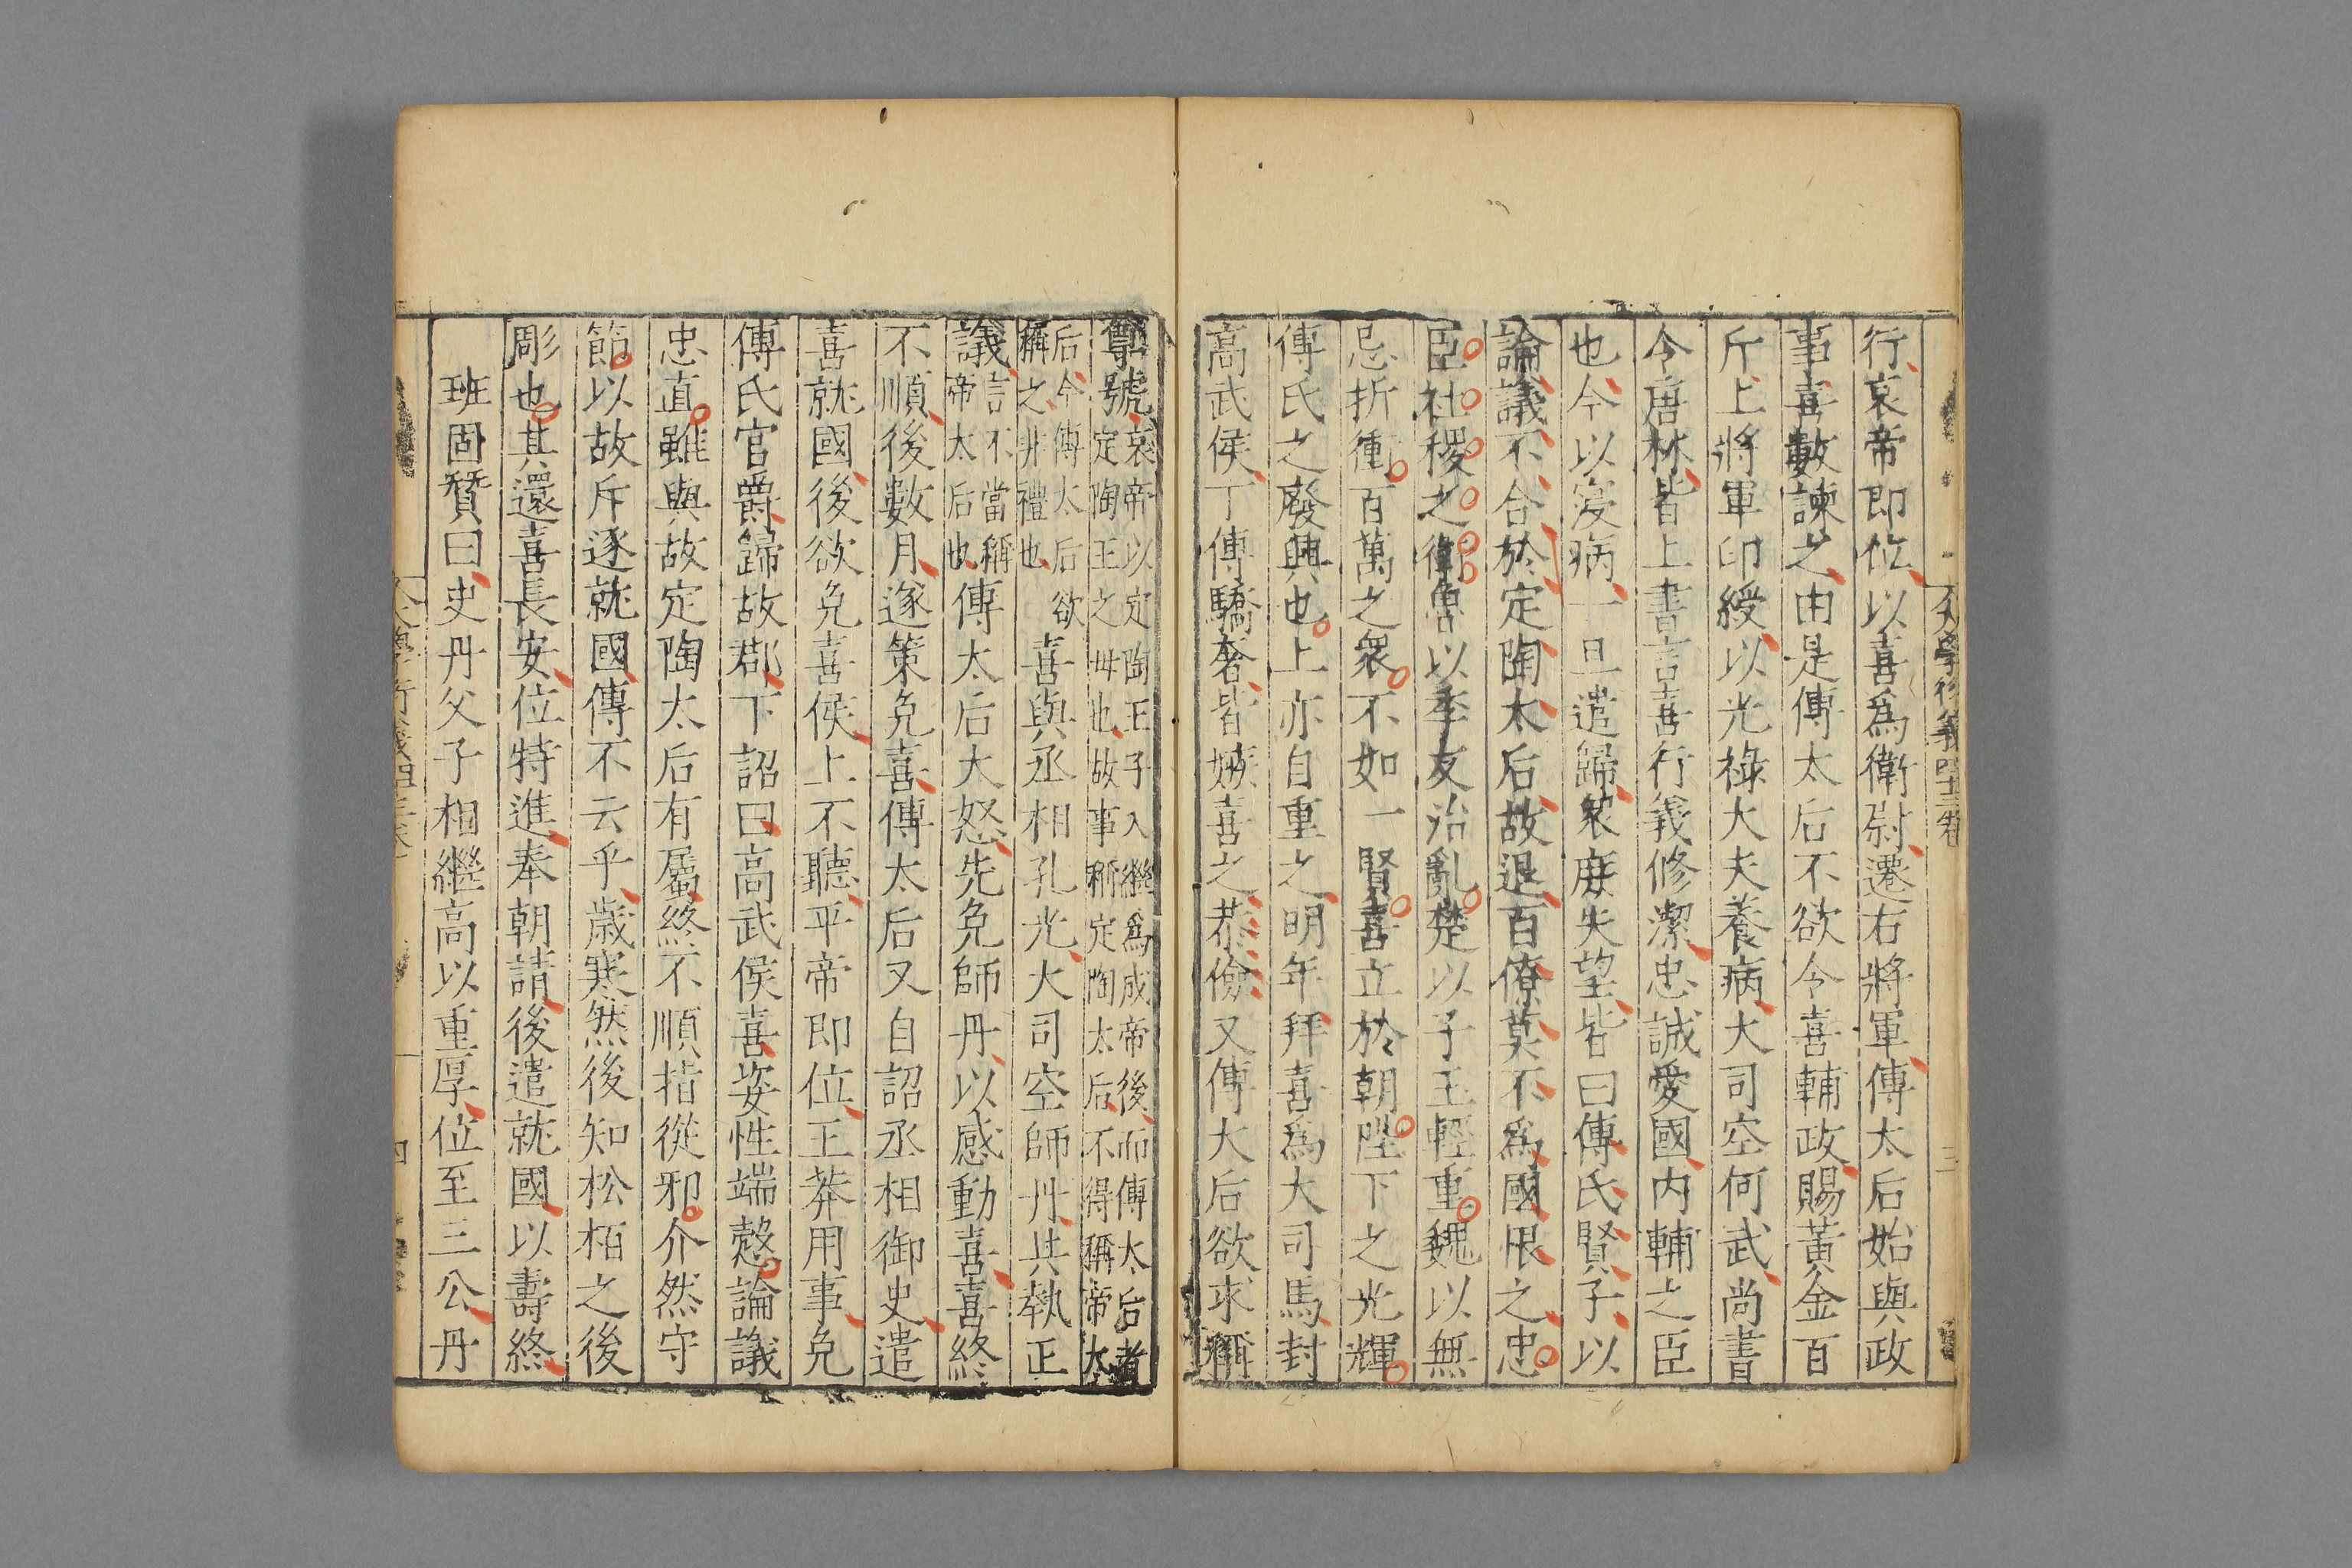 大學衍義四十三卷 三
行哀帝即位以喜為衛尉遷右將軍傅太后始與政
事喜數諫之由是傅太后不欲令喜輔政賜黃金百
斤上將軍印綬以光祿大夫養病大司空何武尚書
令唐林皆上書言喜行義修潔忠誠愛國內輔之臣
也今以寑病一旦遣歸衆庶失望皆曰傅氏賢子以
論議不合於定陶太后故退百僚莫不爲國恨之忠
臣社稷之衛魯以季友治亂楚以子玉輕重魏以無
忌折衝百萬之衆不如一賢喜立於朝陛下之光輝
傅氏之廢興也上亦自重之明年拜喜爲大司馬封
高武侯丁傅驕奢皆嫉喜之恭儉又傅大后欲求稱
尊號哀帝以定陶王子入繼爲成帝後而傅太后者
定陶王之毋也故事稱定陶太后不得稱帝太
后今傅太后欲
稱之非禮也喜與丞相孔光大司空師丹共執正
議言不當稱
帝太后也傅太后大怒先免師丹以感動喜喜終
不順後數月遂策免喜傅太后又自詔丞相御史遣
喜就國後欲免喜侯上不聽平帝即位王莽用事免
傅氏官爵歸故郡下詔曰高武侯喜姿性端愨論議
忠直雖與故定陶太后有屬終不順指從邪介然守
節以故斥逐就國傳不云乎歲寒然後知松栢之後
彫也其還喜長安位特進奉朝請後遣就國以壽終
班固贊曰史丹父子相繼高以重厚位至三公丹
四